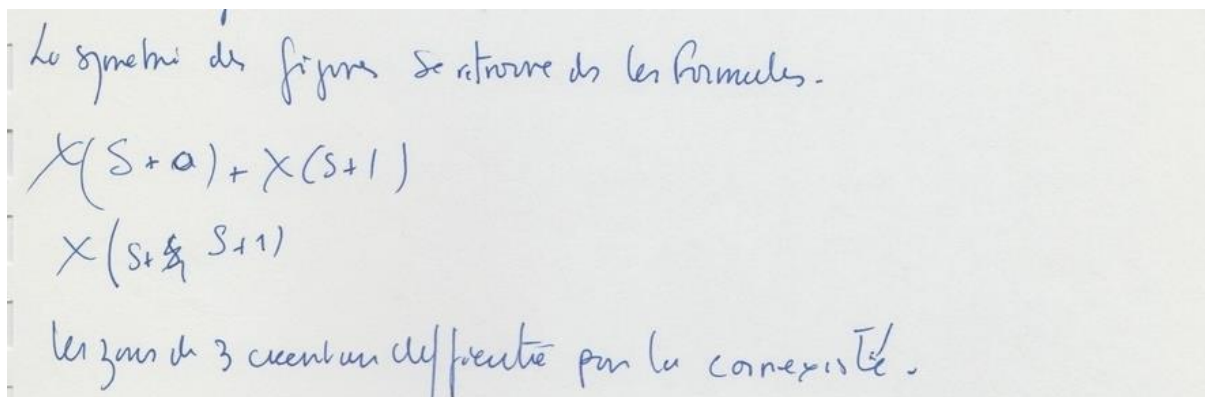 La symetri des figures se retrouve ds les formules.
X(S+a)+X(S+1)
X(S+ S+1)
les zons de 3 creent un difficulté pour la connexité.